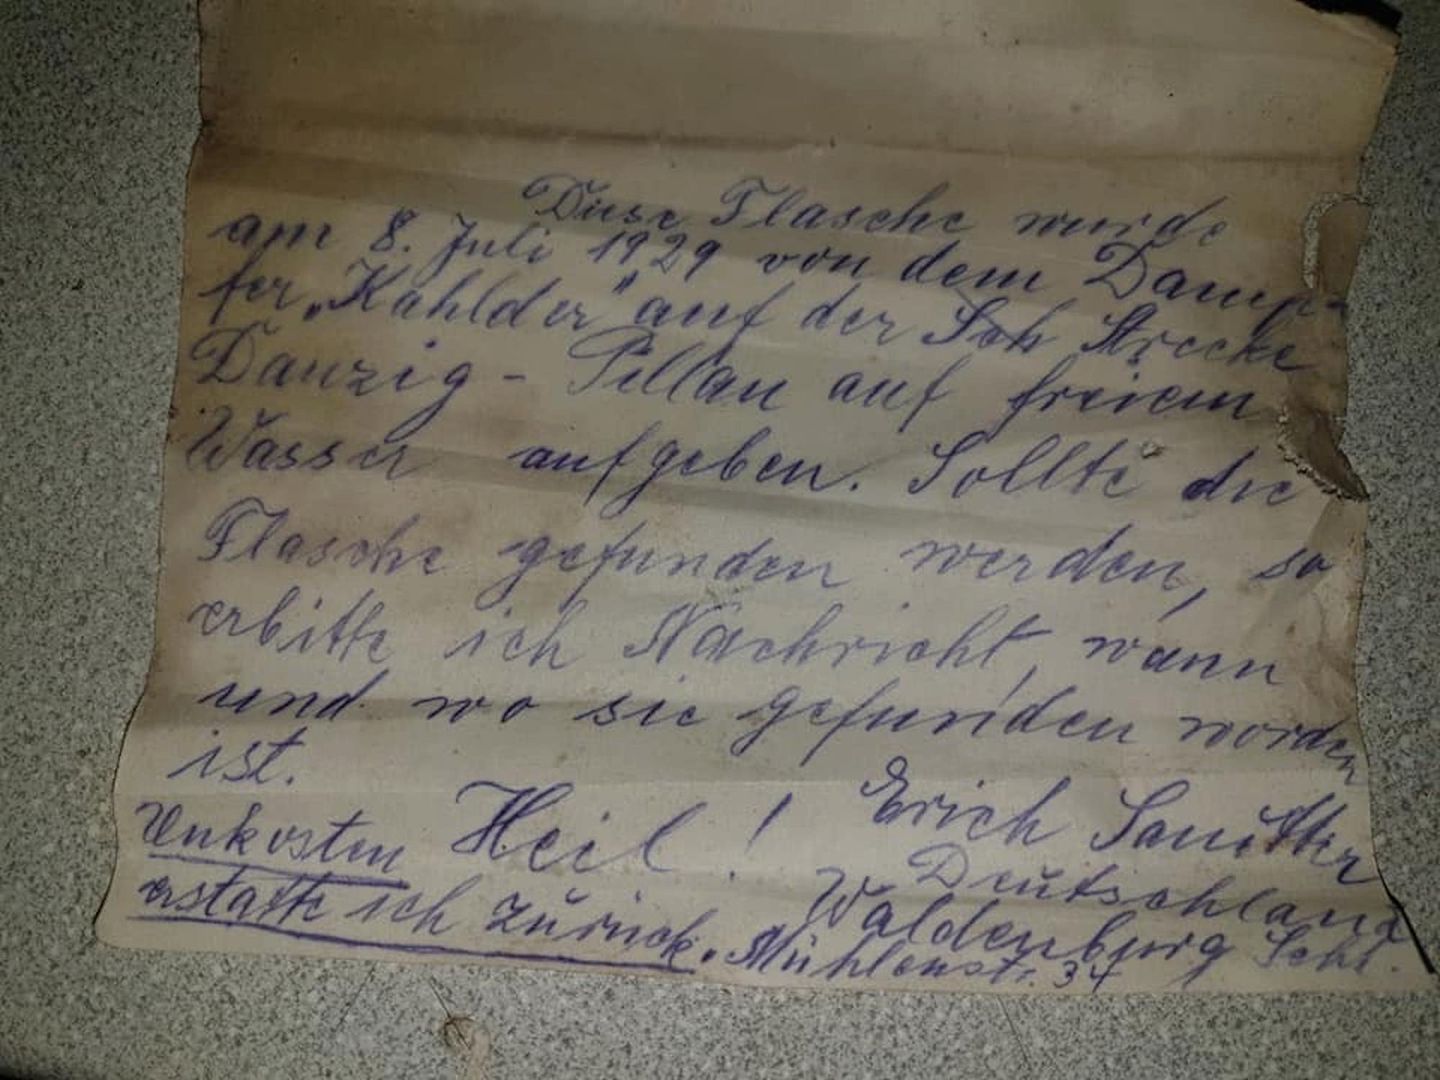 Diese Flasche wurde
am 8. Juli 1929 von dem Damp-
fer „Kahlder" auf der Strecke
Danzig - Pillau auf freiem
Wasser aufgeben. Sollte die
Flasche gefunden werden, so
erbitte ich Nachricht, wann
und wo sie gefunden worden
ist.
Heil! Erich
Unkosten Deutschland
erstatte ich zurück. Waldenburg Schl.
Mühlenstr. 34